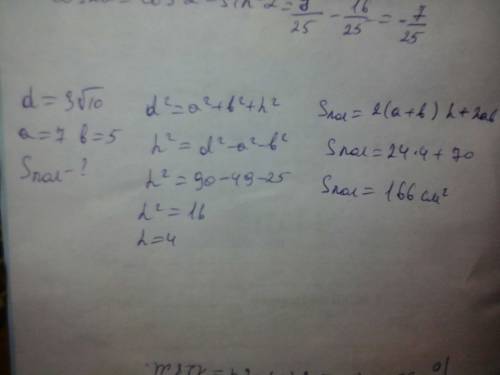 cos²α - sin²α = 9/25 - 16/25 = -7/25
d = 3√10
a = 7 b = 5
Sпол - ?
d² = a² + b² + h²
h² = d² - a² - b²
h² = 90 - 49 - 25
h² = 16
h = 4
Sпол = 2(a + b) h + 2ab
Sпол = 24·4 + 70
Sпол = 166 см²